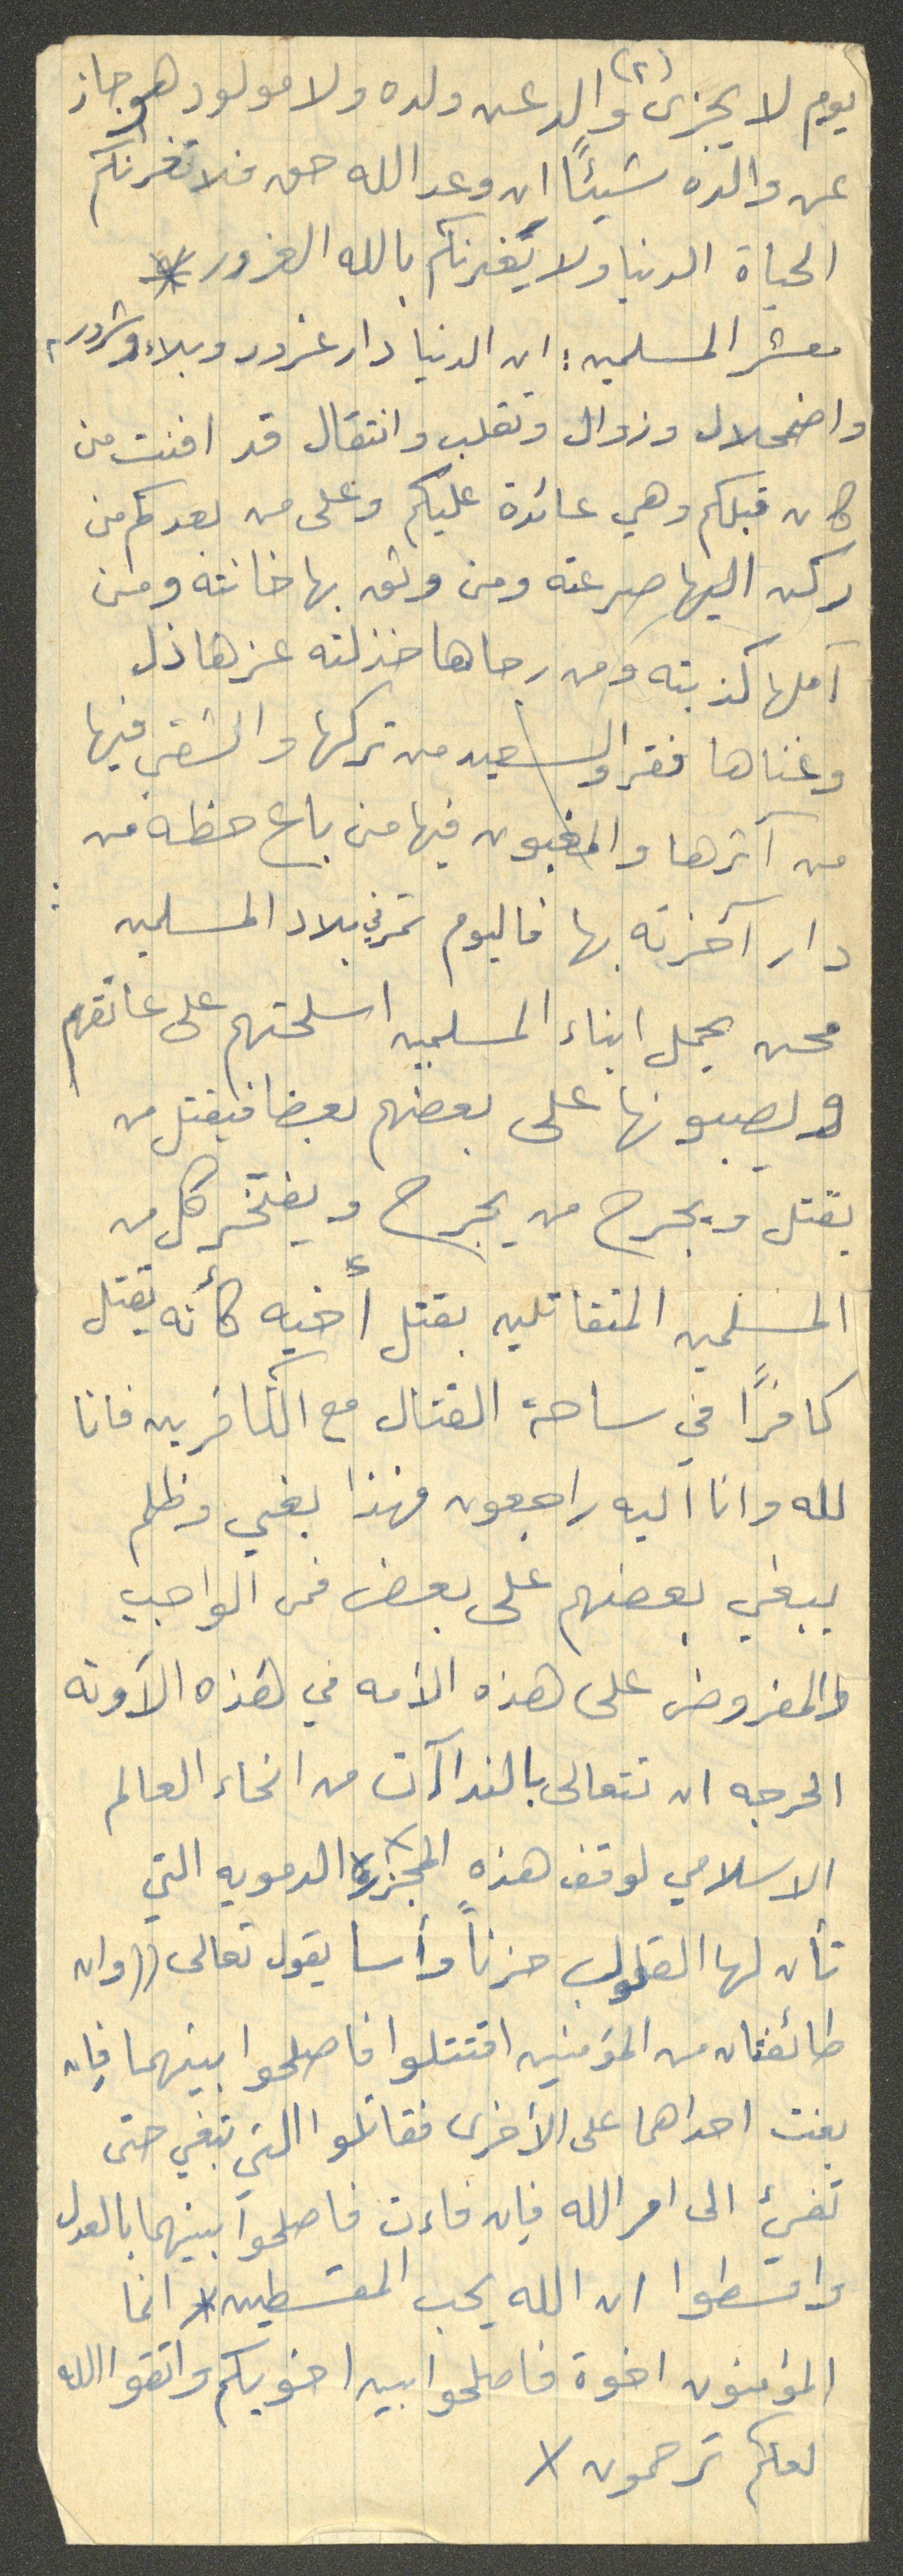 (٢)
يوم لا يجزى والد عن ولده ولا مولود هو جاز
عن والده شيئًا ان وعد الله حق فلا تغرنكم
الحياة الدنيا ولا يغرنكم بالله الغرور *
معشر المسلمين : ان الدنيا دار غرور وبلاء وشرور
واضمحلال وزوال وتقلب وانتقال قد افنت من
كان قبلكم وهي عائدة عليكم وعلى من بعدكم من
ركن اليها صرعته ومن وثق بها خانته ومن
آملها كذبته ومن رجاها خذلته عزها ذل
وغناها فقر والسعيد من تركها والشقي فيها
من آثرها والمغبون فيها من باع حظه من
دار آخرته بها فاليوم تمر في بلاد المسلمين :
محن يحمل ابناء المسلمين اسلحتهم على عاتقهم
ويصبونها على بعضهم بعضا فيقتل من
يقتل ويجرح من يجرح ويفتخر كل من
المسلمين المتقاتلين بقتل أخيه كأنه يقتل
كافرًا في ساحة القتال مع الكافرين فانا
لله وانا اليه راجعون فهذا بغي وظلم
يبغي بعضهم على بعض فمن الواجب
والمفروض على هذه الامه في هذه الآونه
الحرجه ان تتعالى بالنداآت من انحاء العالم
الاسلامي لوقف هذه المجزره الدمويه التي
تأن لها القلوب حزناً وأسا يقول تعالى ((وان
طائفتان من المؤمنين اقتتلوا فاصلحوا بينهما فإن
بغت احداهما على الأخرى فقاتلوا التي تبغي حتى
تفيئ الى امر الله فإن فاءت فاصلحوا بينهما بالعدل
واقسطوا ان الله يحب المقسطين * انما
المؤمنون اخوة فاصلحوا بين اخويكم واتقوا الله
لعلكم ترحمون *